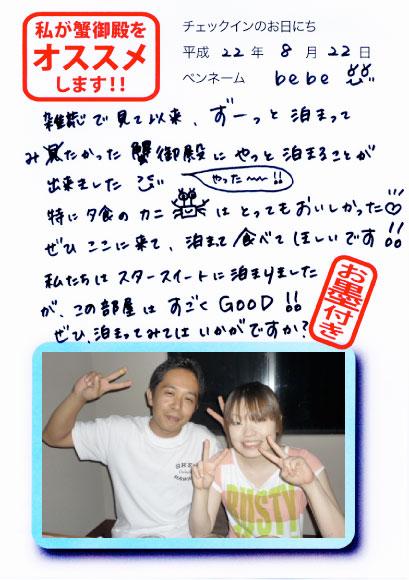 私が蟹御殿を
オススメ
します!!
チェックインのお日にち
平成 22 年 8 月 22 日
ペンネーム bebe
雑誌で見て以来、ずーっと泊まって
みたかった蟹御殿にやっと泊まることが
出来ました
やったー〜!!
特に夕食のカニはとってもおいしかった♡
ぜひここに来て、泊まって食べてほしいです!!
私たちはスタースイートに泊まりました
が、この部屋はすごくGOOD!!
ぜひ、泊まってみてはいかがですか?
お墨付き
RUSTY